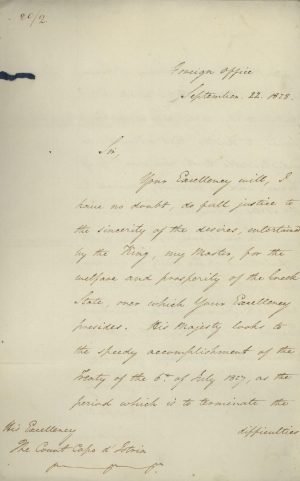 Foreign Office
September. 22. 1828.
Sir,
Your Excellency will, I
have no doubt, do full justice to
the sincerity of the desires, entertained
by the King, my Master, for the
welfare and prosperity of the Greek
State, over which Your Excellency
presides. His Majesty looks to
the speedy accomplishment of the
Treaty of the 6th of July 1827, as the
period which is to terminate the
difficulties
His Excellency
The Count Capo d'Istria